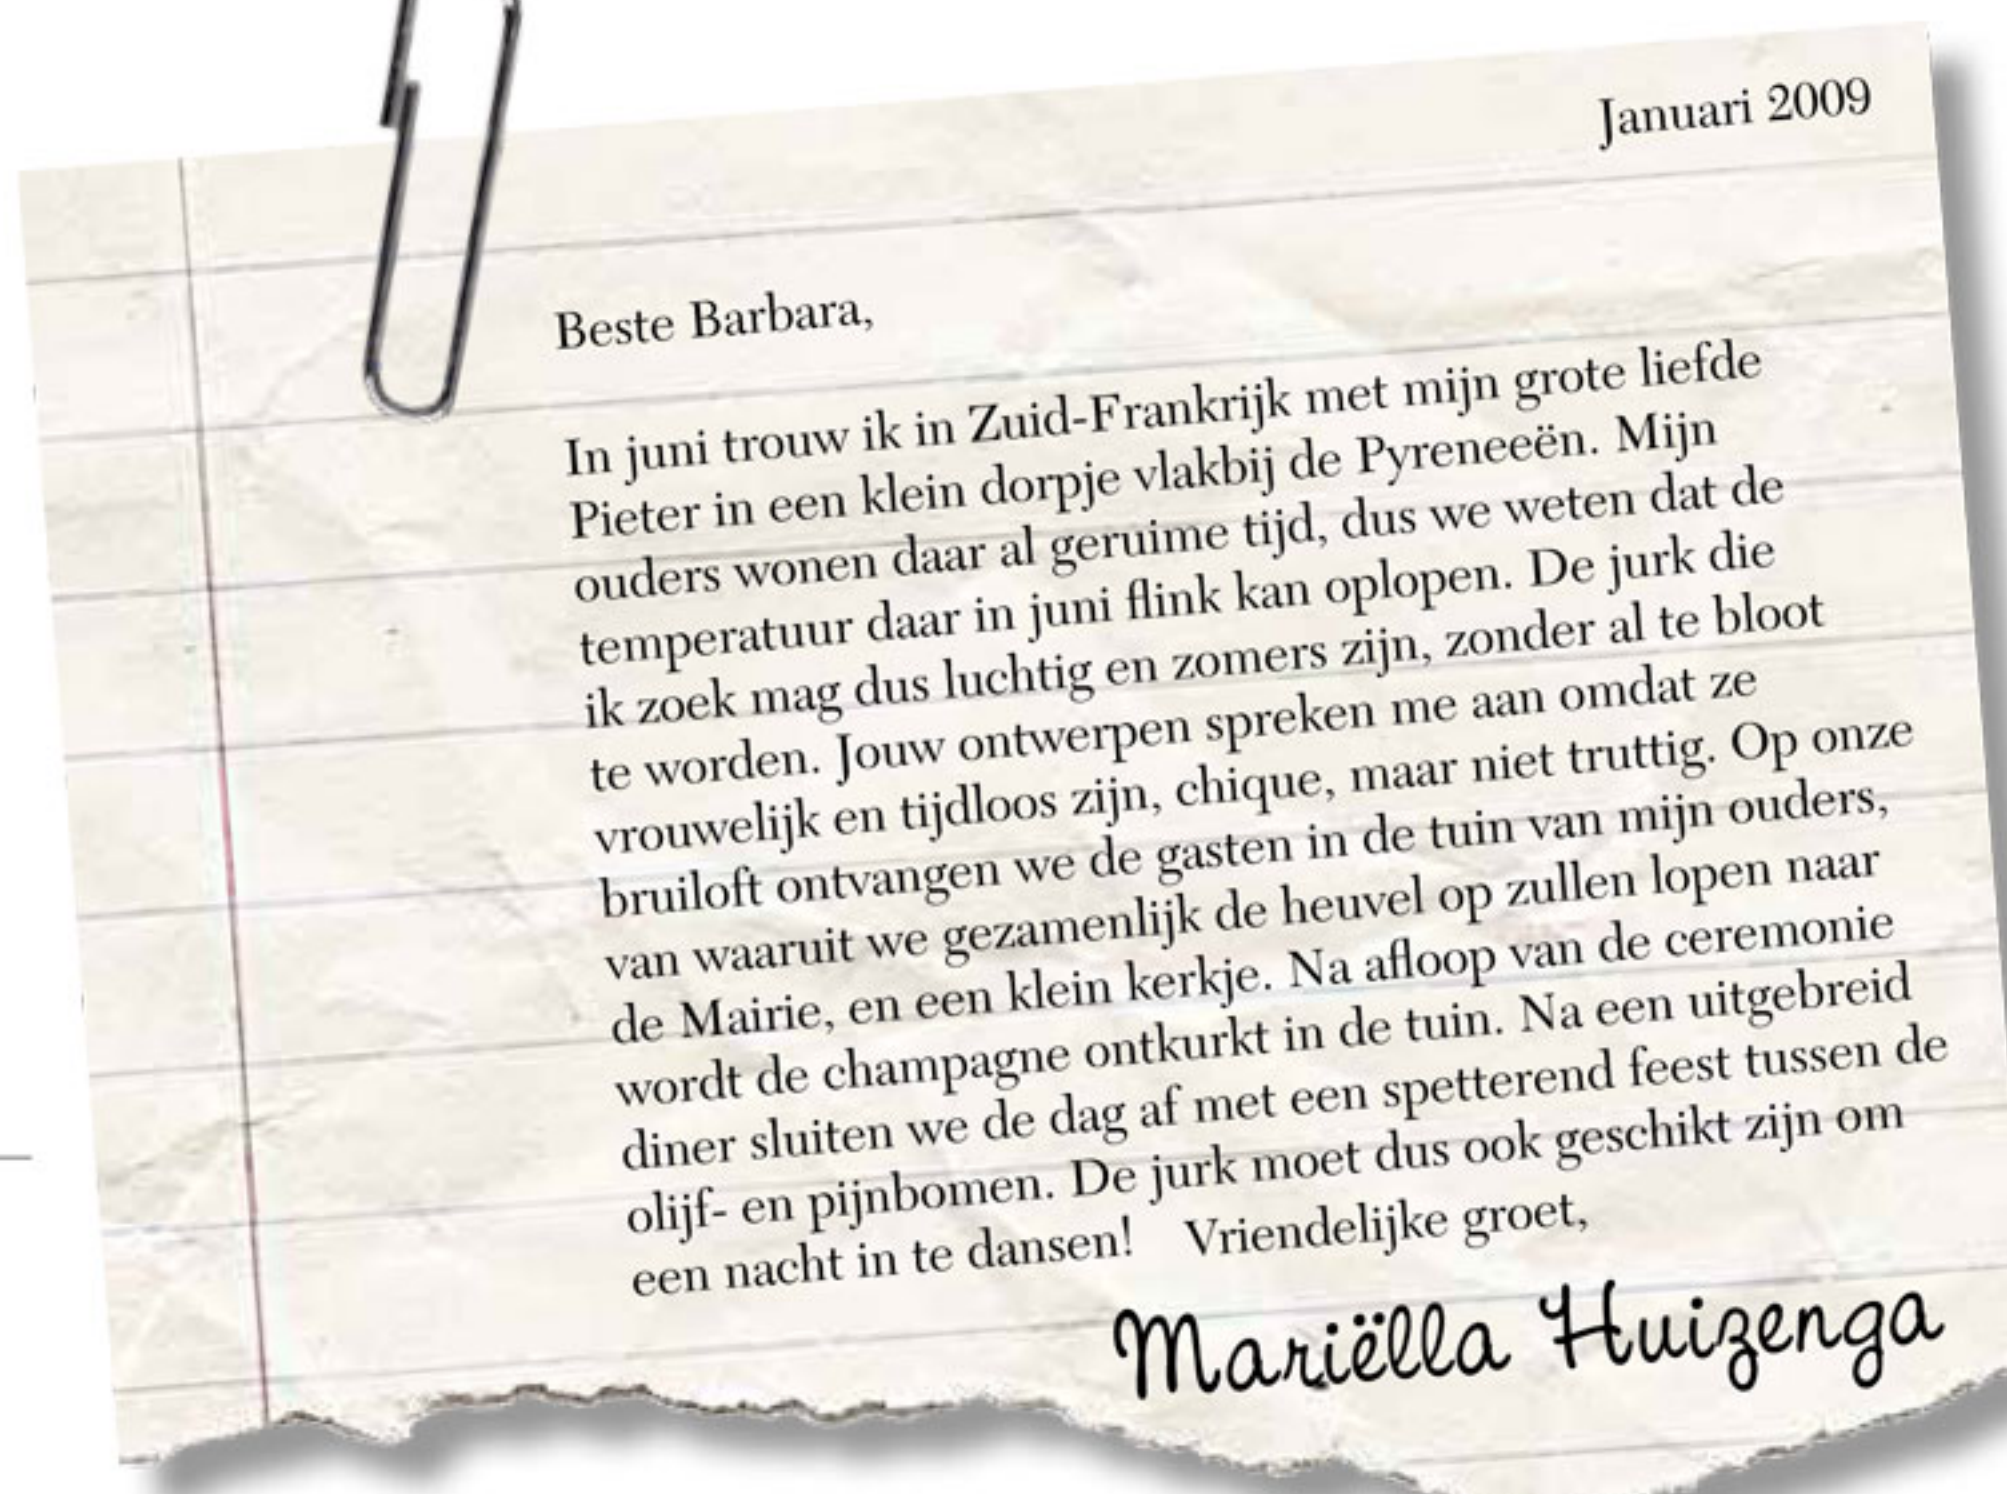 Januari 2009
Beste Barbara,
In juni trouw ik in Zuid-Frankrijk met mijn grote liefde
Pieter in een klein dorpje vlakbij de Pyreneeën. Mijn
ouders wonen daar al geruime tijd, dus we weten dat de
temperatuur daar in juni flink kan oplopen. De jurk die
ik zoek mag dus luchtig en zomers zijn, zonder al te bloot
te worden. Jouw ontwerpen spreken me aan omdat ze
vrouwelijk en tijdloos zijn, chique, maar niet truttig. Op onze
bruiloft ontvangen we de gasten in de tuin van mijn ouders,
van waaruit we gezamenlijk de heuvel op zullen lopen naar
de Mairie, en een klein kerkje. Na afloop van de ceremonie
wordt de champagne ontkurkt in de tuin. Na een uitgebreid
diner sluiten we de dag af met een spetterend feest tussen de
olijf- en pijnbomen. De jurk moet dus ook geschikt zijn om
een nacht in te dansen! Vriendelijke groet,
Mariëlla Huizenga